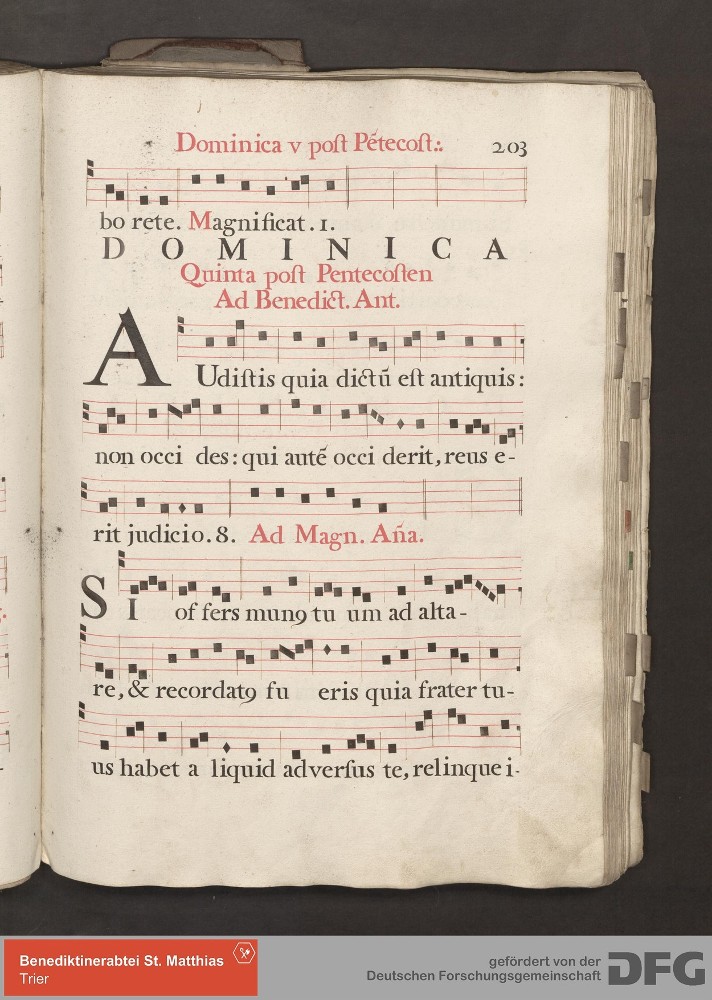 Dominica v poſt Pẽtecoſt.:. 203
bo rete. Magnificat. 1.
DOMINICA
Quinta poſt Pentecoſten
Ad Benedict. Ant.
AUdiſtis quia dictũ eſt antiquis:
non occi des: qui autẽ occi derit, reus e-
rit judicio. 8. Ad Magn. Aña.
SI of fers munꝯ tu um ad alta-
re, & recordatꝯ fu eris quia frater tu-
us habet a liquid adverſus te, relinque i-
Benediktinerabtei St. Matthias
Trier
gefördert von der
Deutschen Forschungsgemeinschaft
DFG